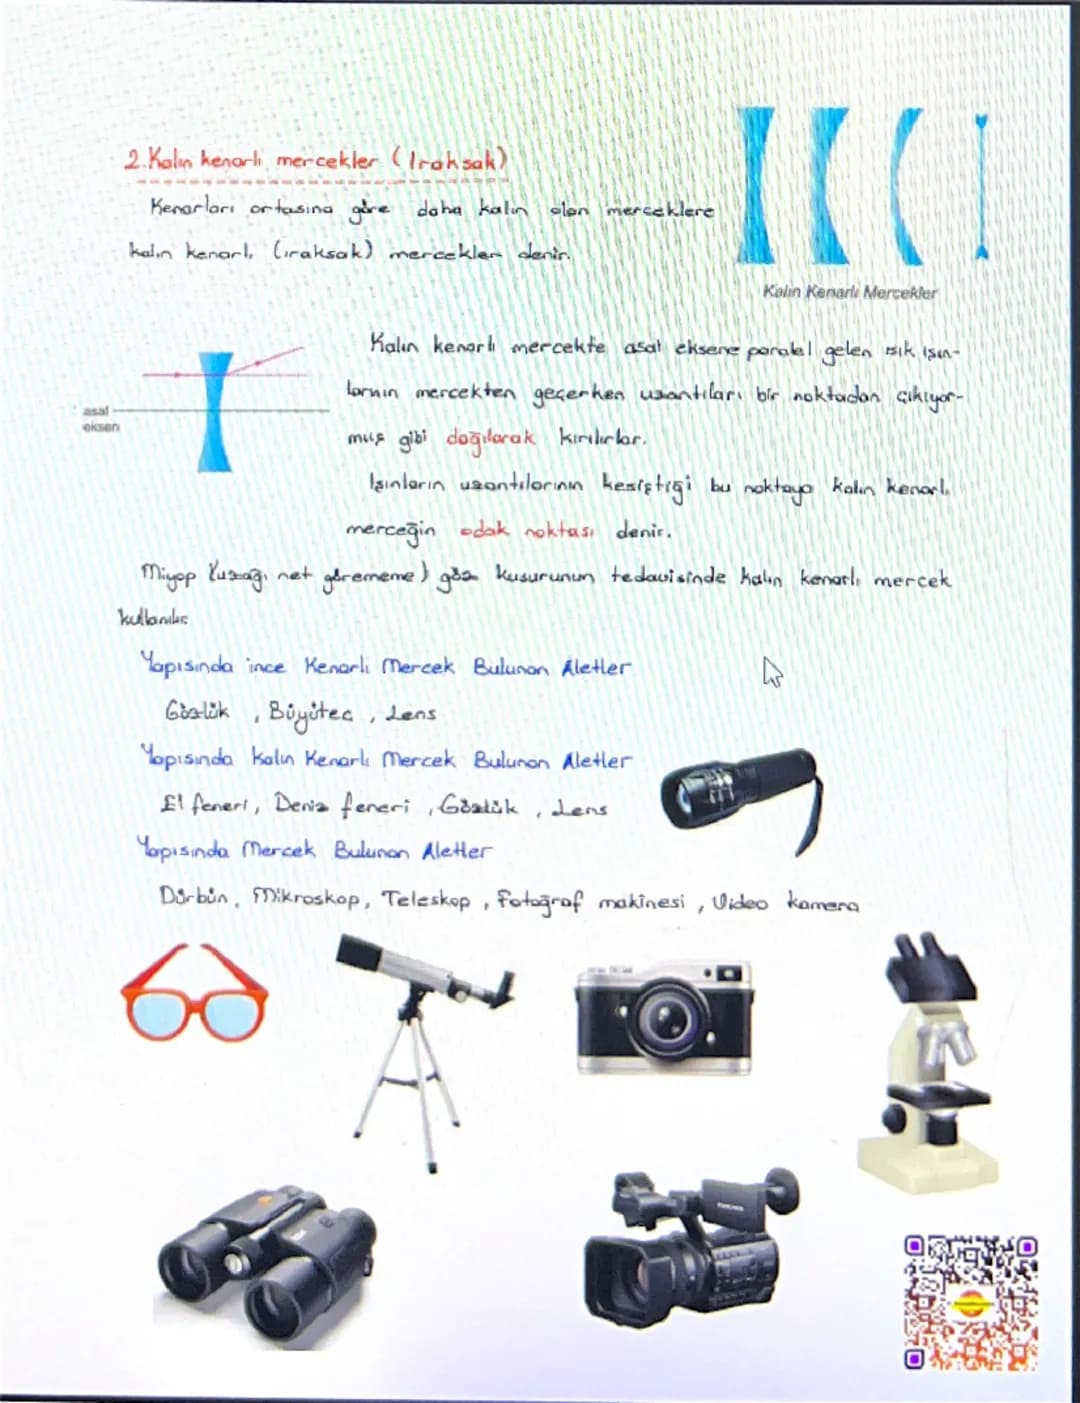 2. Kalın kenarlı mercekler (Iraksak)
Kenarları ortasına göre daha kalın olan merceklere
kalın kenarlı (ıraksak) mercekler denir.
Kalın Kenarlı Mercekler
Kalın kenarlı mercekte asal eksene paralel gelen ışık ışın-
larının mercekten geçerken uzantıları bir noktadan çıkıyor-
muş gibi dağılarak kırılırlar.
asal
eksen
Işınların uzantılarının kesiştiği bu noktaya kalın kenarlı
merceğin odak noktası denir.
Miyop (uzağı net görememe) göz kusurunun tedavisinde kalın kenarlı mercek
kullanılır.
Yapısında ince Kenarlı Mercek Bulunan Aletler
Gözlük, Büyüteç, Lens
Yapısında kalın Kenarlı Mercek Bulunan Aletler
El feneri, Deniz feneri, Gözlük, Lens
Yapısında Mercek Bulunan Aletler
Dürbün, Mikroskop, Teleskop, Fotoğraf makinesi, Video kamera